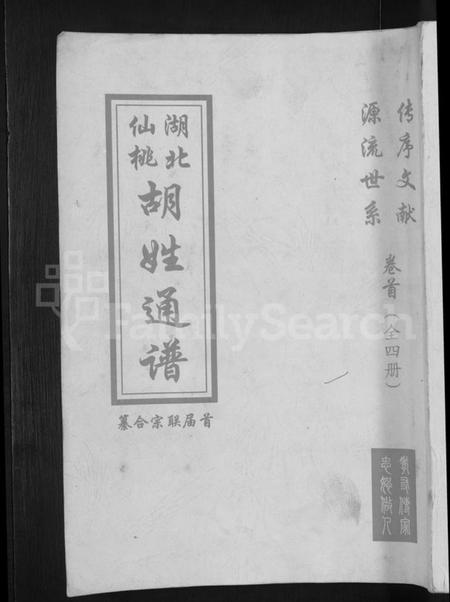 传序文献
源流世系
卷首（全四册）
湖北
仙桃
胡姓通谱
首届联宗合纂
FamilySearch